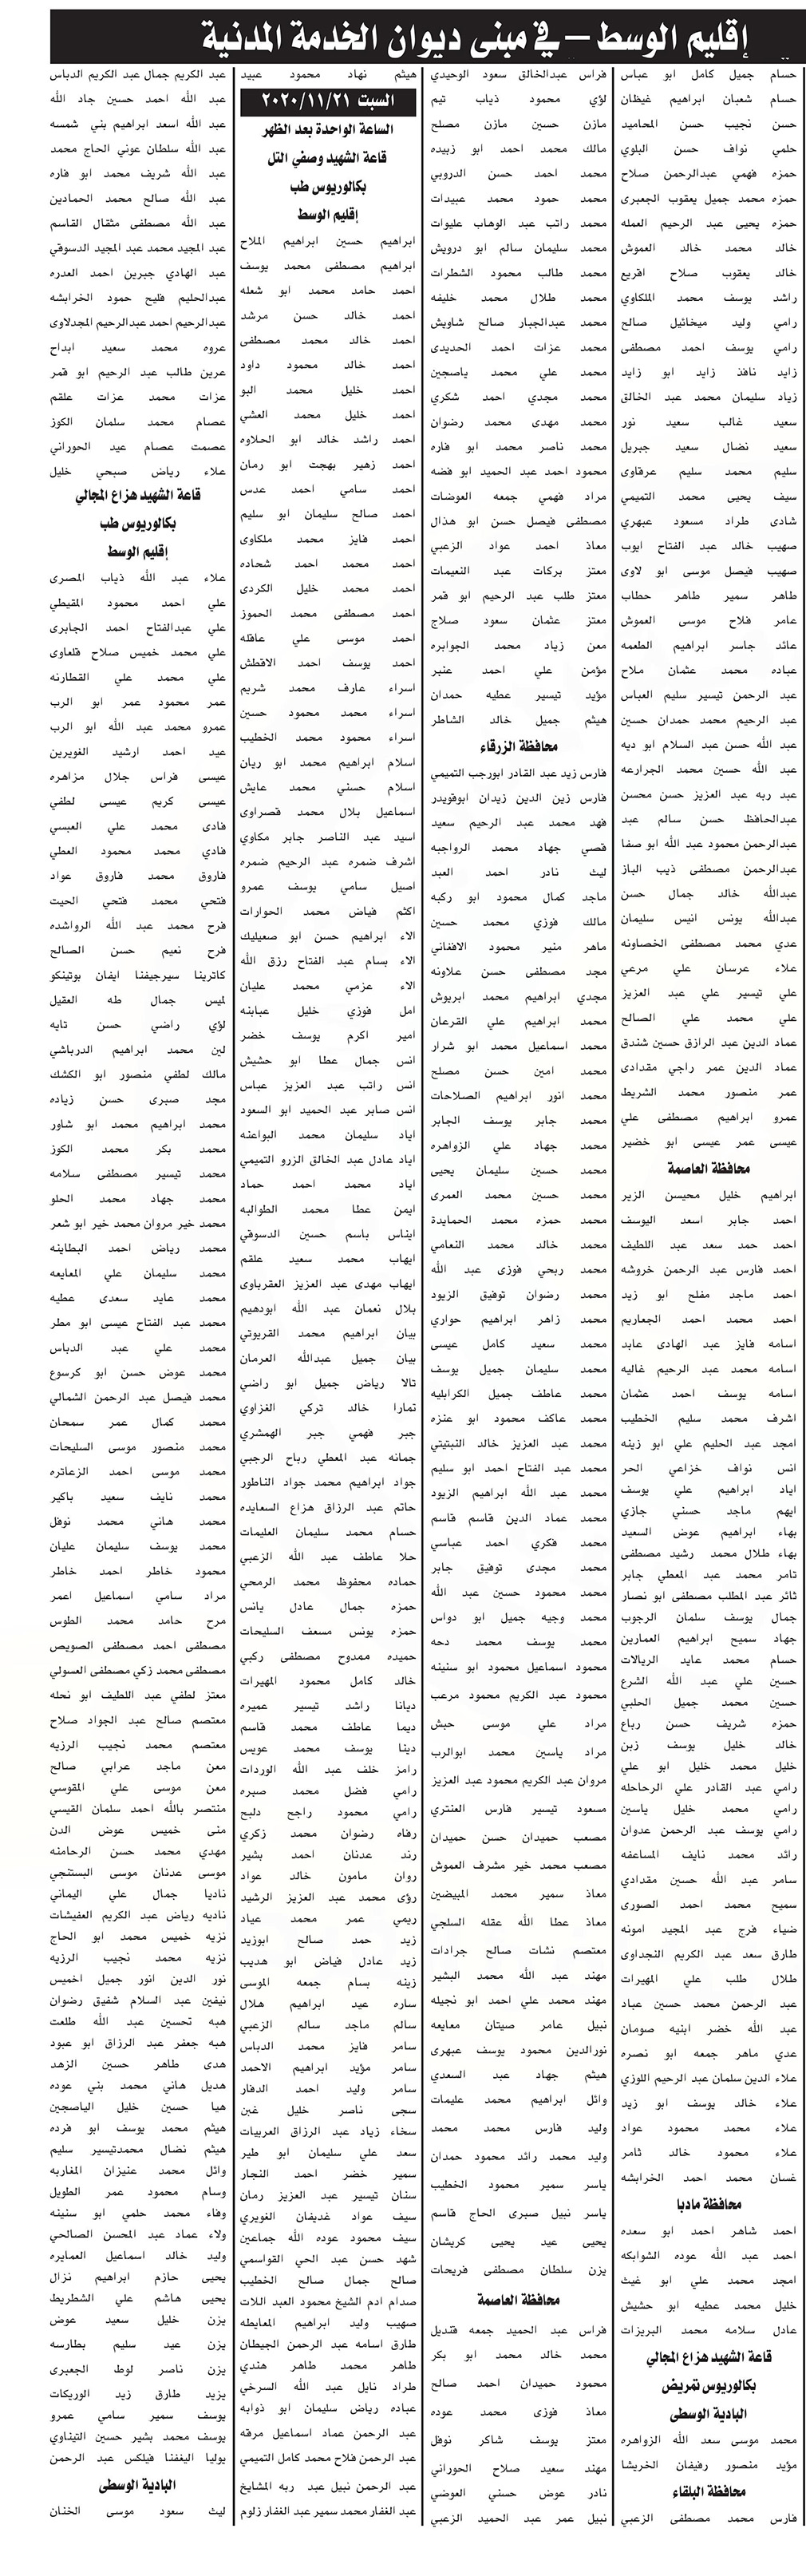 إقليم الوسط – في مبنى ديوان الخدمة المدنية
حسام جميل كامل ابو عباس
حسام شعبان ابراهيم غيظان
حسن نجيب حسن المحاميد
حلمي نواف حسن البلوي
حمزه فهمي عبدالرحمن صلاح
حمزه محمد جميل يعقوب الجعبرى
حمزه يحيى عبد الرحيم العمله
خالد محمد خالد العموش
خالد يعقوب صلاح اقريع
راشد يوسف محمد الملكاوي
رامي وليد ميخائيل صالح
رامي يوسف احمد مصطفى
زايد نافذ زايد ابو زايد
زياد سليمان محمد عبد الخالق
سعيد غالب سعيد نور
سعيد نضال سعيد جبريل
سليم محمد سليم عرقاوى
سيف يحيى محمد التميمي
شادى طراد مسعود عبهري
صهيب خالد عبد الفتاح ايوب
صهيب فيصل موسى ابو لاوى
طاهر سمير طاهر حطاب
عامر فلاح موسى العموش
عائد جاسر ابراهيم الطعمه
عباده محمد عثمان ملاح
عبد الرحمن تيسير سليم العباس
عبد الرحيم محمد حمدان حسين
عبد الله حسن عبد السلام ابو ديه
عبد الله حسين محمد الجرارعه
عبد ربه عبد العزيز حسن محسن
عبدالحافظ حسن سالم عبد
عبدالرحمن محمود عبد الله ابو صفا
عبدالرحمن مصطفى ذيب الباز
عبدالله خالد جمال حسن
عبدالله يونس انيس سليمان
عدي محمد مصطفى الخصاونه
علاء عرسان علي مرعي
علي تيسير علي عبد العزيز
علي محمد علي الصالح
عماد الدين عبد الرازق حسين شندق
عماد الدين عمر راجي مقدادى
عمر منصور محمد الشريط
عمرو ابراهيم مصطفى علي
عيسى عمر عيسى ابو خضير
محافظة العاصمة
ابراهيم خليل محيسن الزير
احمد جابر اسعد اليوسف
احمد حمد سعد عبد اللطيف
احمد فارس عبد الرحمن خروشه
احمد ماجد مفلح ابو زيد
احمد محمد احمد الجعاريم
اسامه فايز عبد الهادى عابد
اسامه محمد عبد الرحيم غاليه
اسامه يوسف احمد عثمان
اشرف محمد سليم الخطيب
امجد عبد الحليم علي ابو زينه
انس نواف خزاعي الحر
اياد ابراهيم علي يوسف
ايهم ماجد حسني جازي
بهاء ابراهيم عوض السعيد
بهاء طلال محمد رشيد مصطفى
تامر محمد عبد المعطي جابر
ثائر عبد المطلب مصطفى ابو نصار
جمال يوسف سلمان الرجوب
جهاد سميح ابراهيم العمارين
حسام محمد عايد الريالات
حسين علي عبد الله الشرع
حسين محمد جميل الحلبي
حمزه شريف حسن رباع
خالد خليل يوسف زين
خليل محمد خليل ابو علي
رامي عبد القادر علي الرحاحله
رامي محمد خليل ياسين
رامي يوسف عبد الرحمن عدوان
رائد محمد نايف المساعفه
سامر عبد الله حسين مقدادي
سميح محمد احمد الصورى
ضياء فرج عبد المجيد امونه
طارق سعد عبد الكريم النجداوى
طلال طلب علي المهيرات
عبد الرحمن محمد حسين عباد
عبد الله خضر ابنيه صومان
عدي ماهر جمعه ابو نصره
علاء الدين سلمان عبد الرحيم اللوزي
علاء خالد يوسف ابو زيد
علاء محمد محمود عواد
علاء محمود خالد ثامر
غسان محمد احمد الخرابشه
محافظة مادبا
احمد شاهر احمد ابو سعده
احمد عبد الله عوده الشوابكه
امجد محمد علي ابو غيث
خليل محمد عطيه ابو حشيش
عادل سلامه محمد البريزات
قاعة الشهيد هزاع المجالي
بكالوريوس تمريض
البادية الوسطى
محمد موسى سعد الله الزواهره
مؤيد منصور رفيفان الخريشا
محافظة البلقاء
فارس محمد مصطفى الزعبي
فراس عبدالخالق سعود الوحيدي
لؤي محمود ذياب تيم
مازن حسين مازن مصلح
مالك محمد احمد ابو زبيده
محمد احمد حسن الدروبي
محمد حمود محمد عبيدات
محمد راتب عبد الوهاب عليوات
محمد سليمان سالم ابو درويش
محمد طالب محمود الشطرات
محمد طلال محمد خليفه
محمد عبدالجبار صالح شاويش
محمد عزات احمد الحديدى
محمد علي محمد ياصجين
محمد مجدي احمد شكري
محمد مهدى محمد رضوان
محمد ناصر محمد ابو فاره
محمود احمد عبد الحميد ابو فضه
مراد فهمي جمعه العوضات
مصطفى فيصل حسن ابو هذال
معاذ احمد عواد الزعبي
معتز بركات عبد النعيمات
معتز طلب عبد الرحيم ابو قمر
معتز عثمان سعود صلاح
معن زياد محمد الجوابره
مؤمن علي احمد عنبر
مؤيد تيسير عطيه حمدان
هيثم جميل خالد الشاطر
محافظة الزرقاء
فارس زيد عبد القادر ابورجب التميمي
فارس زين الدين زيدان ابوقويدر
فهد محمد عبد الرحيم سعيد
قصي جهاد محمد الرواجبه
ليث نادر احمد العبد
ماجد كمال محمود ابو ركبه
مالك فوزي محمد حسين
ماهر منير محمود الافغاني
مجد مصطفى حسن علاونه
مجدي ابراهيم محمد ابريوش
محمد ابراهيم علي القرعان
محمد اسماعيل محمد ابو شرار
محمد امين حسن مصلح
محمد انور ابراهيم الصلاحات
محمد جابر يوسف الجابر
محمد جهاد علي الزواهره
محمد حسين سليمان يحيى
محمد حسين محمد العمرى
محمد حمزه محمد الحمايدة
محمد خالد محمد النعامي
محمد ربحي فوزى عبد الله
محمد رضوان توفيق الزيود
محمد زاهر ابراهيم حوارى
محمد سعيد كامل عيسى
محمد سليمان جميل يوسف
محمد عاطف جميل الكرابليه
محمد عاكف محمود ابو عنزه
محمد عبد العزيز خالد النبتيتي
محمد عبد الفتاح احمد ابو سليم
محمد عبد الله ابراهيم الزيود
محمد عماد الدين قاسم قاسم
محمد فكري احمد عباسي
محمد مجدى توفيق جابر
محمد محمود حسين عبد الله
محمد وجيه جميل ابو دواس
محمد يوسف محمد دحه
محمود اسماعيل محمود ابو سنينه
محمود عبد الكريم محمود مرعب
مراد علي موسى حبش
مراد ياسين محمد ابوالرب
مروان عبد الكريم محمود عبد العزيز
مسعود تيسير فارس العنتري
مصعب حميدان حسن حميدان
مصعب محمد خير مشرف العموش
معاذ سمير محمد المبيضين
معاذ عطا الله عقله السلجي
معتصم نشات صالح جرادات
مهند عبد الله محمد البشير
مهند محمد علي احمد ابو نجيله
نبيل عامر صيتان معايعه
نورالدين محمود يوسف عبهرى
هيثم جهاد عبد السعدي
وائل ابراهيم محمد عليمات
وليد فارس محمد محمد
وليد محمد رائد محمود حمدان
ياسر سمير محمود الخطيب
ياسر نبيل صبرى الحاج قاسم
يحيى عبد يحيى كريشان
يزن سلطان مصطفى فريحات
محافظة العاصمة
فراس عبد الحميد جمعه قنديل
محمد خالد محمد ابو بكر
محمود حميدان احمد صالح
معاذ فوزى محمد عوده
معتز يوسف شاكر نوفل
مهند سعيد صلاح الحوراني
نادر عوض حسني العوضي
نبيل عمر عبد الحميد الزعبي
هيثم نهاد محمود عبيد
السبت ٢٠٢٠/١١/٢١
الساعة الواحدة بعد الظهر
قاعة الشهيد وصفي التل
بكالوريوس طب
إقليم الوسط
ابراهيم حسين ابراهيم الملاح
ابراهيم مصطفى محمد يوسف
احمد حامد محمد ابو شعله
احمد خالد حسن مرشد
احمد خالد محمد مصطفى
احمد خالد محمود داود
احمد خليل محمد البو
احمد خليل محمد العشي
احمد راشد خالد ابو الحلاوه
احمد زهير بهجت ابو رمان
احمد سامي احمد عدس
احمد صالح سليمان ابو سليم
احمد فايز محمد ملكاوى
احمد محمد احمد شحاده
احمد محمد خليل الكردى
احمد مصطفى محمد الحموز
احمد موسى علي عاقله
احمد يوسف احمد الاقطش
اسراء عارف محمد شريم
اسراء محمد محمود حسين
اسراء محمود محمد الخطيب
اسلام ابراهيم محمد ابو ريان
اسلام حسني محمد عايش
اسماعيل بلال محمد قصراوى
اسيد عبد الناصر جابر مكاوي
اشرف ضمره عبد الرحيم ضمره
اصيل سامي يوسف عمرو
اكثم فياض محمد الحوارات
الاء ابراهيم حسن ابو صعيليك
الاء بسام عبد الفتاح رزق الله
الاء عزمي محمد عليان
امل فوزي خليل عبابنه
امير اكرم يوسف خضر
انس جمال عطا ابو حشيش
انس راتب عبد العزيز عباس
انس صابر عبد الحميد ابو السعود
اياد سليمان محمد البواعنه
اياد عادل عبد الخالق الزرو التميمي
اياد محمد احمد حماد
ايمن عطا محمد الطوالبه
ايناس باسم حسين الدسوقي
ايهاب محمد سعيد علقم
ايهاب مهدى عبد العزيز العقرباوى
بلال نعمان عبد الله ابودهيم
بيان ابراهيم محمد القريوتي
بيان جميل عبدالله العرمان
تالا رياض جميل ابو راضي
تمارا خالد تركي الغزاوي
جبر فهمي جبر الهمشري
جمانه عبد المعطي رباح الرجبي
جواد ابراهيم محمد جواد الناطور
حاتم عبد الرزاق هزاع السعايده
حسام محمد سليمان العليمات
حلا عاطف عبد الله الزعبي
حماده محفوظ محمد الرمحي
حمزه جمال عادل يانس
حمزه يونس مسعف السليحات
حميده ممدوح مصطفى ركبي
خالد كامل محمود المهيرات
ديانا راشد تيسير عميره
ديما عاطف محمد قاسم
دينا يوسف محمد عويس
رامز خلف عبد الله الوردات
رامي فضل محمد صبره
رامي محمود راجح دليح
رفاه رضوان محمد زكري
رند عدنان احمد بشير
روان مامون خالد عواد
رؤى محمد عبد العزيز الرشيد
ريمي عمر محمد عياد
زيد حمد صالح ابوزيد
زيد عادل فياض ابو هديب
زينه بسام جمعه الموسى
ساره عيد ابراهيم هلال
سالم ماجد سالم الزعبي
سامر فايز محمد الدباس
سامر مؤيد ابراهيم الاحمد
سامر وليد احمد الدقار
سجى ناصر خليل غبن
سخاء زياد عبد الرزاق العربيات
سعد علي سليمان ابو طير
سمير خضر احمد النجار
سنان تيسير عبد العزيز رمان
سيف عواد غديفان الغويري
سيف محمود عوده الله جماعين
شهد حسن عبد الحي القواسمي
صالح جمال صالح الخطيب
صدام ادم الشيخ محمود العبد اللات
صهيب وليد ابراهيم المعايطه
طارق اسامه عبد الرحمن الجيطان
طاهر محمد طاهر هندي
طراد نايل عبد الله السرخي
عباده رياض سليمان ابو ذوابه
عبد الرحمن عماد اسماعيل مرقه
عبد الرحمن فلاح محمد كامل التميمي
عبد الرحمن نبيل عبد ربه المشايخ
عبد الغفار محمد سمير عبد الغفار زلوم
عبد الكريم جمال عبد الكريم الدباس
عبد الله احمد حسين جاد الله
عبد الله اسعد ابراهيم بني شمسه
عبد الله سلطان عوني الحاج محمد
عبد الله شريف محمد ابو فاره
عبد الله صالح محمد الحمادين
عبد الله مصطفى مثقال القاسم
عبد المجيد محمد عبد المجيد الدسوقي
عبد الهادي جبرين احمد العدره
عبدالحليم فليح حمود الخرابشه
عبدالرحيم احمد عبدالرحيم المجدلاوى
عروه محمد سعيد ابداح
عرين طالب عبد الرحيم ابو قمر
عزات محمد عزات علقم
عصام محمد سلمان الكوز
عصمت عصام عبد الحوراني
علاء رياض صبحي خليل
قاعة الشهيد هزاع المجالي
بكالوريوس طب
إقليم الوسط
علاء عبد الله ذياب المصرى
علي احمد محمود المقيطي
علي عبدالفتاح احمد الجابرى
علي محمد خميس صلاح قلعاوى
علي محمد علي القطارنه
عمر محمود عمر ابو الرب
عمرو محمد عبد الله ابو الرب
عيد احمد ارشيد الغويرين
عيسى فراس جلال مزاهره
عيسى كريم عيسى لطفي
فادى محمد علي العبسي
فادي محمد محمود العطي
فاروق محمد فاروق عواد
فتحي محمد فتحي الحيت
فرح محمد عبد الله الرواشده
فرح نعيم حسن الصالح
كاترينا سيرجيفنا ايفان بوتينكو
لميس جمال طه العقيل
لؤي راضي حسن تايه
لين محمد ابراهيم الدرباشي
مالك لطفي منصور ابو الكشك
مجد صبرى حسن زياده
محمد ابراهيم محمد ابو شاور
محمد بكر محمد الكوز
محمد تيسير مصطفى سلامه
محمد جهاد محمد الحلو
محمد خير مروان محمد خير ابو شعر
محمد رياض احمد البطاينه
محمد سليمان علي المعايعه
محمد عايد سعدى عطيه
محمد عبد الفتاح عيسى ابو مطر
محمد علي عبد الدباس
محمد عوض حسن ابو كرسوع
محمد فيصل عبد الرحمن الشمالي
محمد كمال عمر سمحان
محمد منصور موسى السليحات
محمد موسى احمد الزعاتره
محمد نايف سعيد باكير
محمد هاني محمد نوفل
محمد يوسف سليمان عليان
محمود خاطر احمد خاطر
مراد سامي اسماعيل اعمر
مرح حامد محمد الطوس
مصطفى احمد مصطفى الصويص
مصطفى محمد زكي مصطفى العسولي
معتز لطفي عبد اللطيف ابو نحله
معتصم صالح عبد الجواد صلاح
معتصم محمد نجيب الرزيه
معن ماجد عرابي صالح
معن موسى علي المقوسي
منتصر بالله احمد سلمان القيسي
منى خميس عوض الدن
مهدي محمد حسن الرحامنه
موسى عدنان موسى البستنجي
ناديا جمال علي اليماني
ناديه رياض عبد الكريم العفيشات
نزيه خميس محمد ابو الحاج
نزيه محمد نجيب الرزيه
نور الدين انور جميل اخميس
نيفين عبد السلام شفيق رضوان
هبه تحسين عبد الله طلعت
هبه جعفر عبد الرزاق ابو عبود
هدى طاهر حسين الزهد
هديل هاني محمد بني عوده
هيا حسين خليل الياصجين
هيثم محمد يوسف ابو فرده
هيثم نضال محمدتيسير سليم
وائل محمد عنيزان المغاربه
وسام محمود عمر الطويل
وفاء محمد حلمي ابو سنينه
ولاء عماد عبد المحسن الصالحي
وليد خالد اسماعيل العمايره
يحيى حازم ابراهيم نزال
يحيى هاشم علي الشطريط
يزن خليل سعيد عوض
يزن عيد سليم بطارسه
يزن ناصر لوط الجعبرى
يزيد طارق زيد الوريكات
يوسف سمير سامي عمرو
يوسف محمد بشير حسين التيناوي
يوليا اليففنا فيلكس عبد الرحمن
البادية الوسطى
ليث سعود موسى الخنان